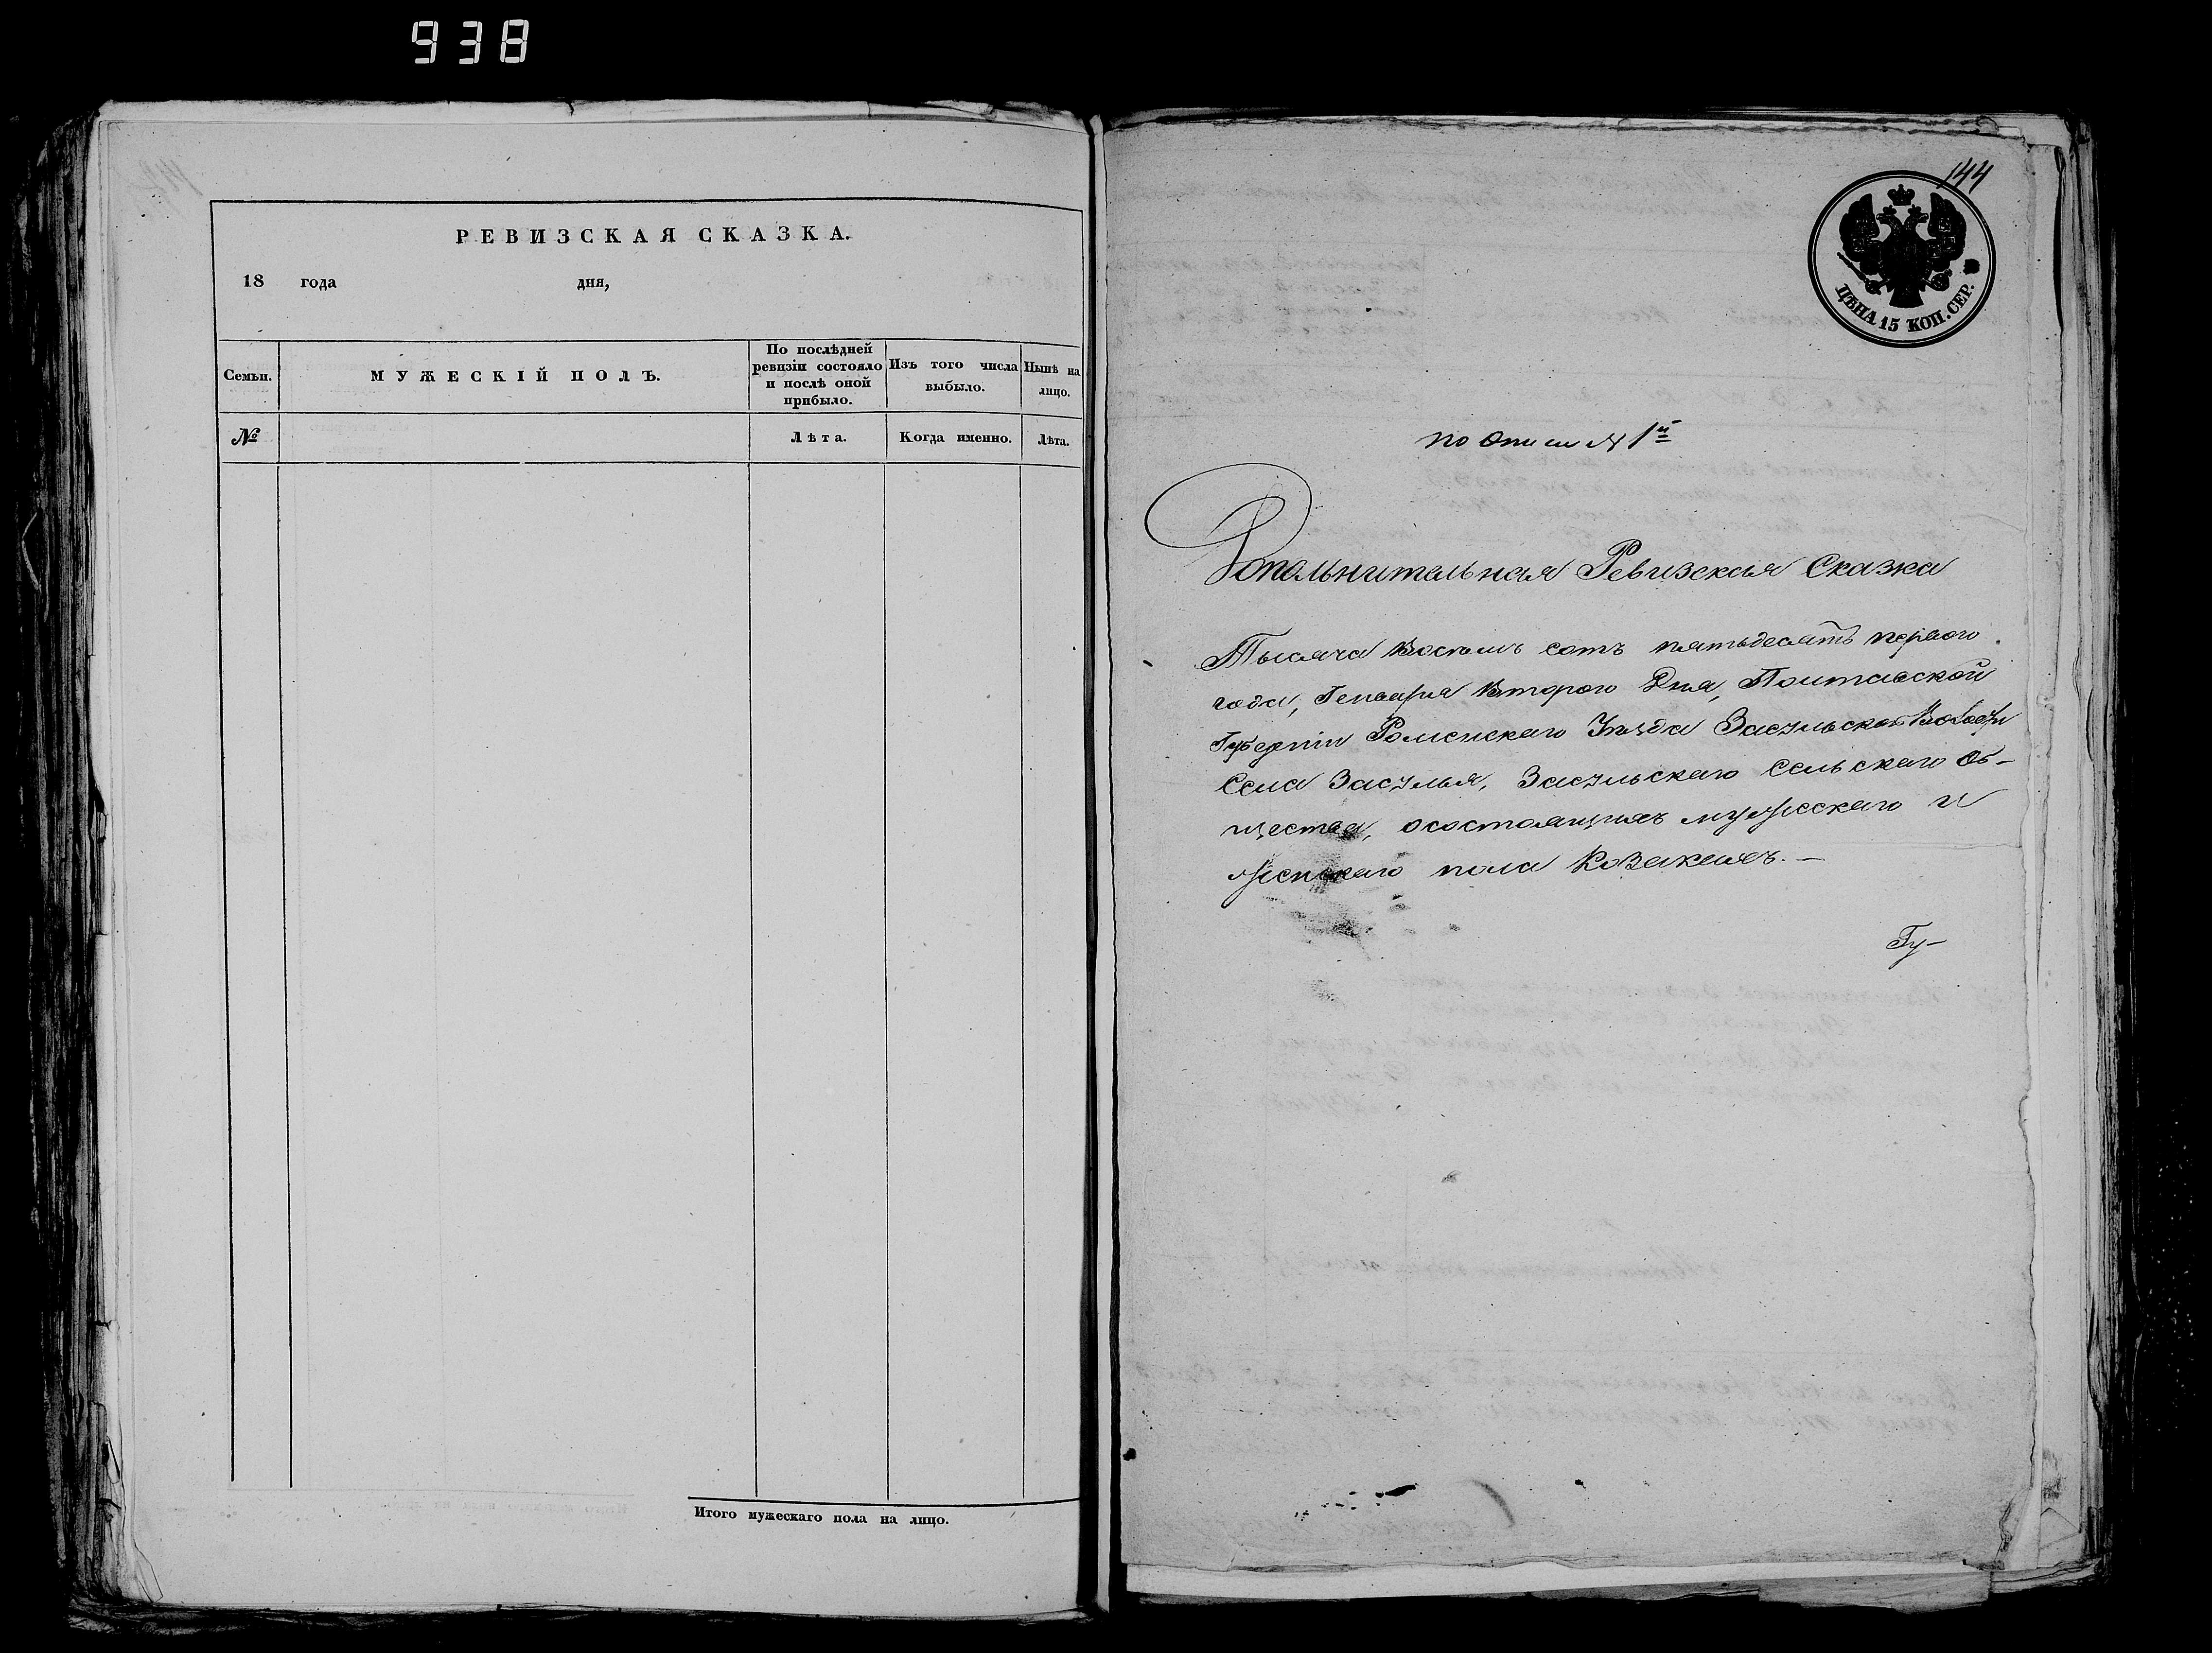 938
РЕВИЗСКАЯ СКАЗКА.
18 года дня,
Семьи.
МУЖЕСКІЙ ПОЛЪ.
По послѣдней
ревизіи состояло
и послѣ оной
прибыло.
Изъ того числа
выбыло.
Нынѣ на
лицо.
№
Лѣта.
Когда именно.
Лѣта.
Итого мужескаго пола на лицо.
144
ЦѢНА 15 КОП. СЕР.
по описи № 1й
Дополнительная Ревизская Сказка
Тысяча восемь сотъ пятьдесятъ перваго
года, Генваря второго Дня, Полтавской
Губерніи Роменскаго Уѣзда Засульской Волости
Села Засулья, Засульскаго Сельскаго Об-
щества, осостоящихъ мужескаго и
женскаго пола Козакахъ.—
Гу-